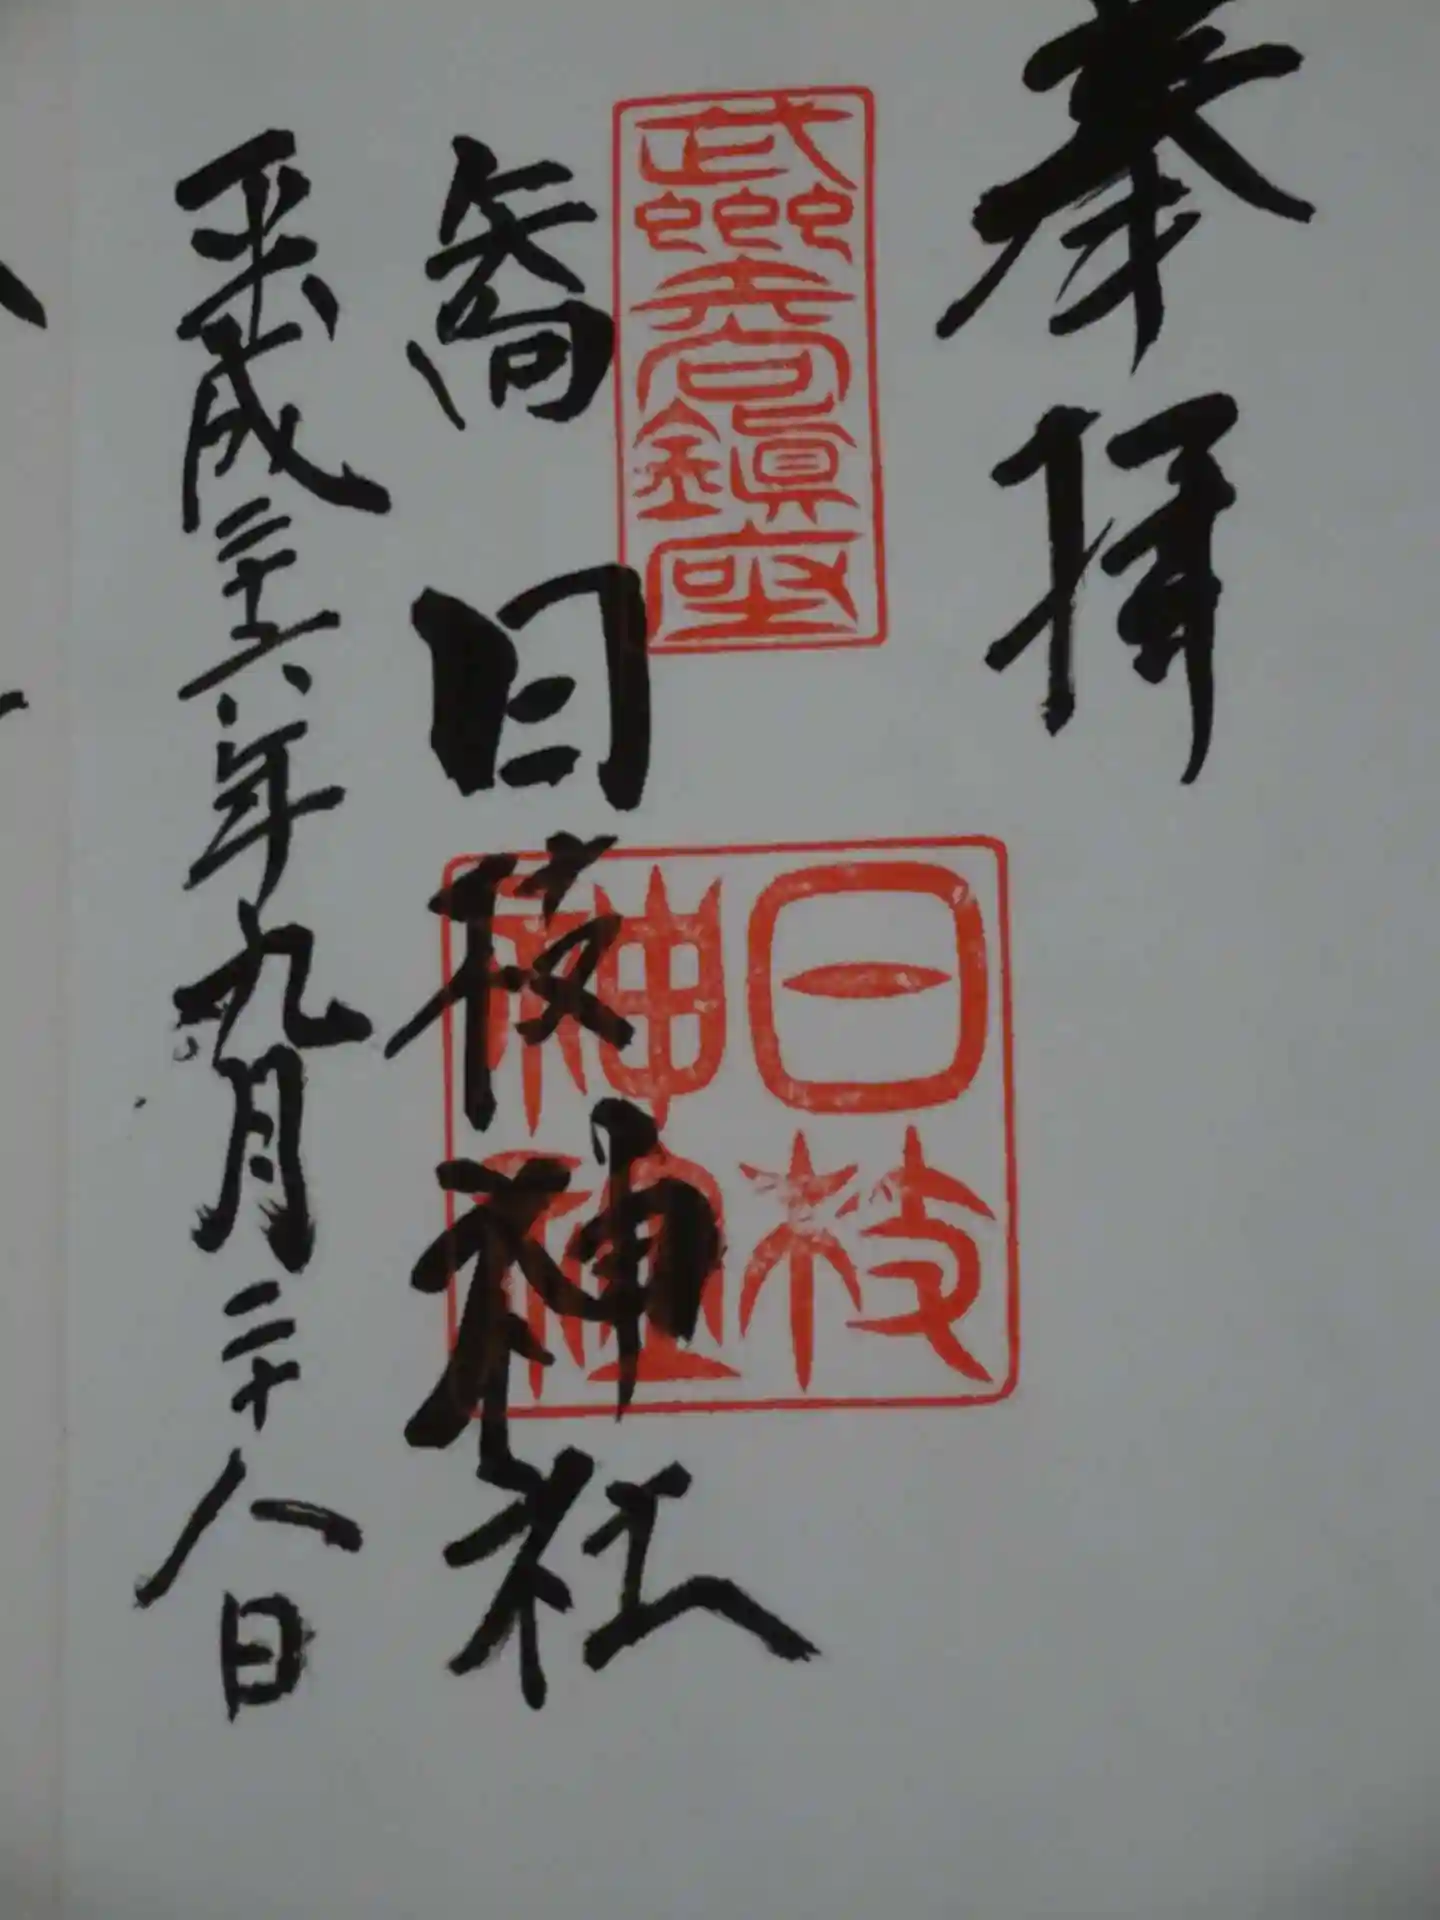 奉拝
武州矢向鎮座
矢向 日枝神社
日枝神社
平成二十六年九月二十八日